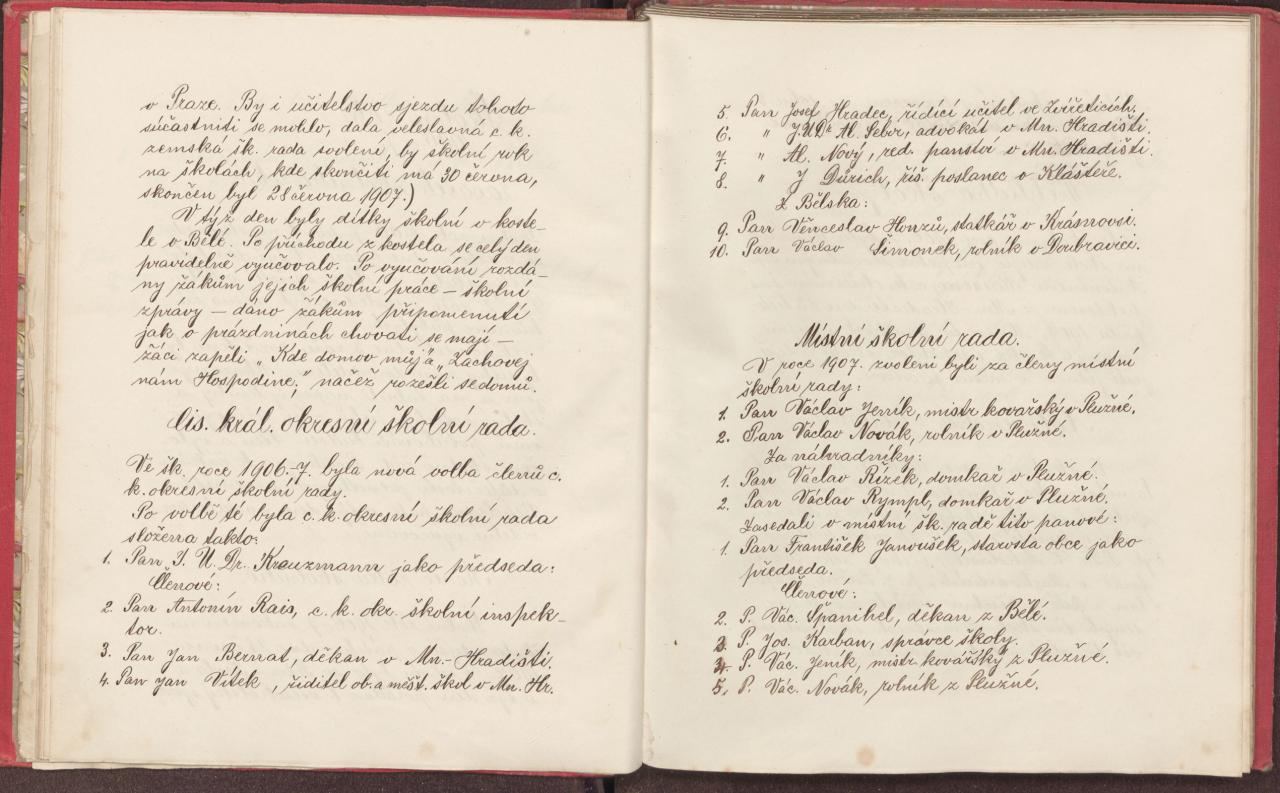 v Praze. By i učitelstvo sjezdu tohoto
súčastniti se mohlo, dala veleslavná c. k.
zemská šk. rada svolení, by školní rok
na školách, kde skončiti má 30 června,
skončen byl 28 června 1907.)
V týž den byly dítky školní v koste-
le v Bělé. Po příchodu z kostela se celý den
pravidelně vyučovalo. Po vyučování rozdá-
ny žákům jejich školní práce – školní
zprávy – dáno žákům připomenutí
jak o prázdninách chovati se mají –
žáci zapěli „Kde domov můj" a „Zachovej
nám Hospodine;" načež rozešli se domů.
Cis. král. okresní školní rada.
Ve šk. roce 1906.-7. byla nová volba členů c.
k. okresní školní rady.
Po volbě té byla c. k. okresní školní rada
složena takto:
1. Pan J. U. Dr. Kreuzmann jako předseda:
Členové:
2. Pan Antonín Rais, c. k. okr. školní inspek-
tor.
3. Pan Jan Bernat, děkan v Mn.-Hradišti.
4. Pan Jan Vítek, řiditel ob. a měšt. škol v Mn. Hr.
5. Pan Josef Hradec, řídící učitel ve Zvířeticích.
6. " J.U.Dr Al. Šebor, advokát v Mn. Hradišti.
7. " Al. Nový, řed. panství v Mn. Hradišti.
8. " J Dürich, říš. poslanec v Klášteře.
Z Bělska:
9. Pan Věnceslav Honzů, statkář v Krásnovsi.
10. Pan Václav Šimonek, rolník v Doubravici.
Místní školní rada.
V roce 1907. zvoleni byli za členy místní
školní rady:
1. Pan Václav Jeník, mistr kovářský v Plužné.
2. Pan Václav Novák, rolník v Plužné.
Za náhradníky:
1. Pan Václav Řízek, domkař v Plužné.
2. Pan Václav Rympl, domkař v Plužné.
Zasedali v místní šk. radě tito pánové:
1. Pan František Janoušek, starosta obce jako
předseda.
Členové:
2. P. Vác. Španihel, děkan z Bělé.
3. P. Jos. Karban, správce školy.
4. P. Vác. Jeník, mistr kovářský z Plužné.
5. P. Vác. Novák, rolník z Plužné.